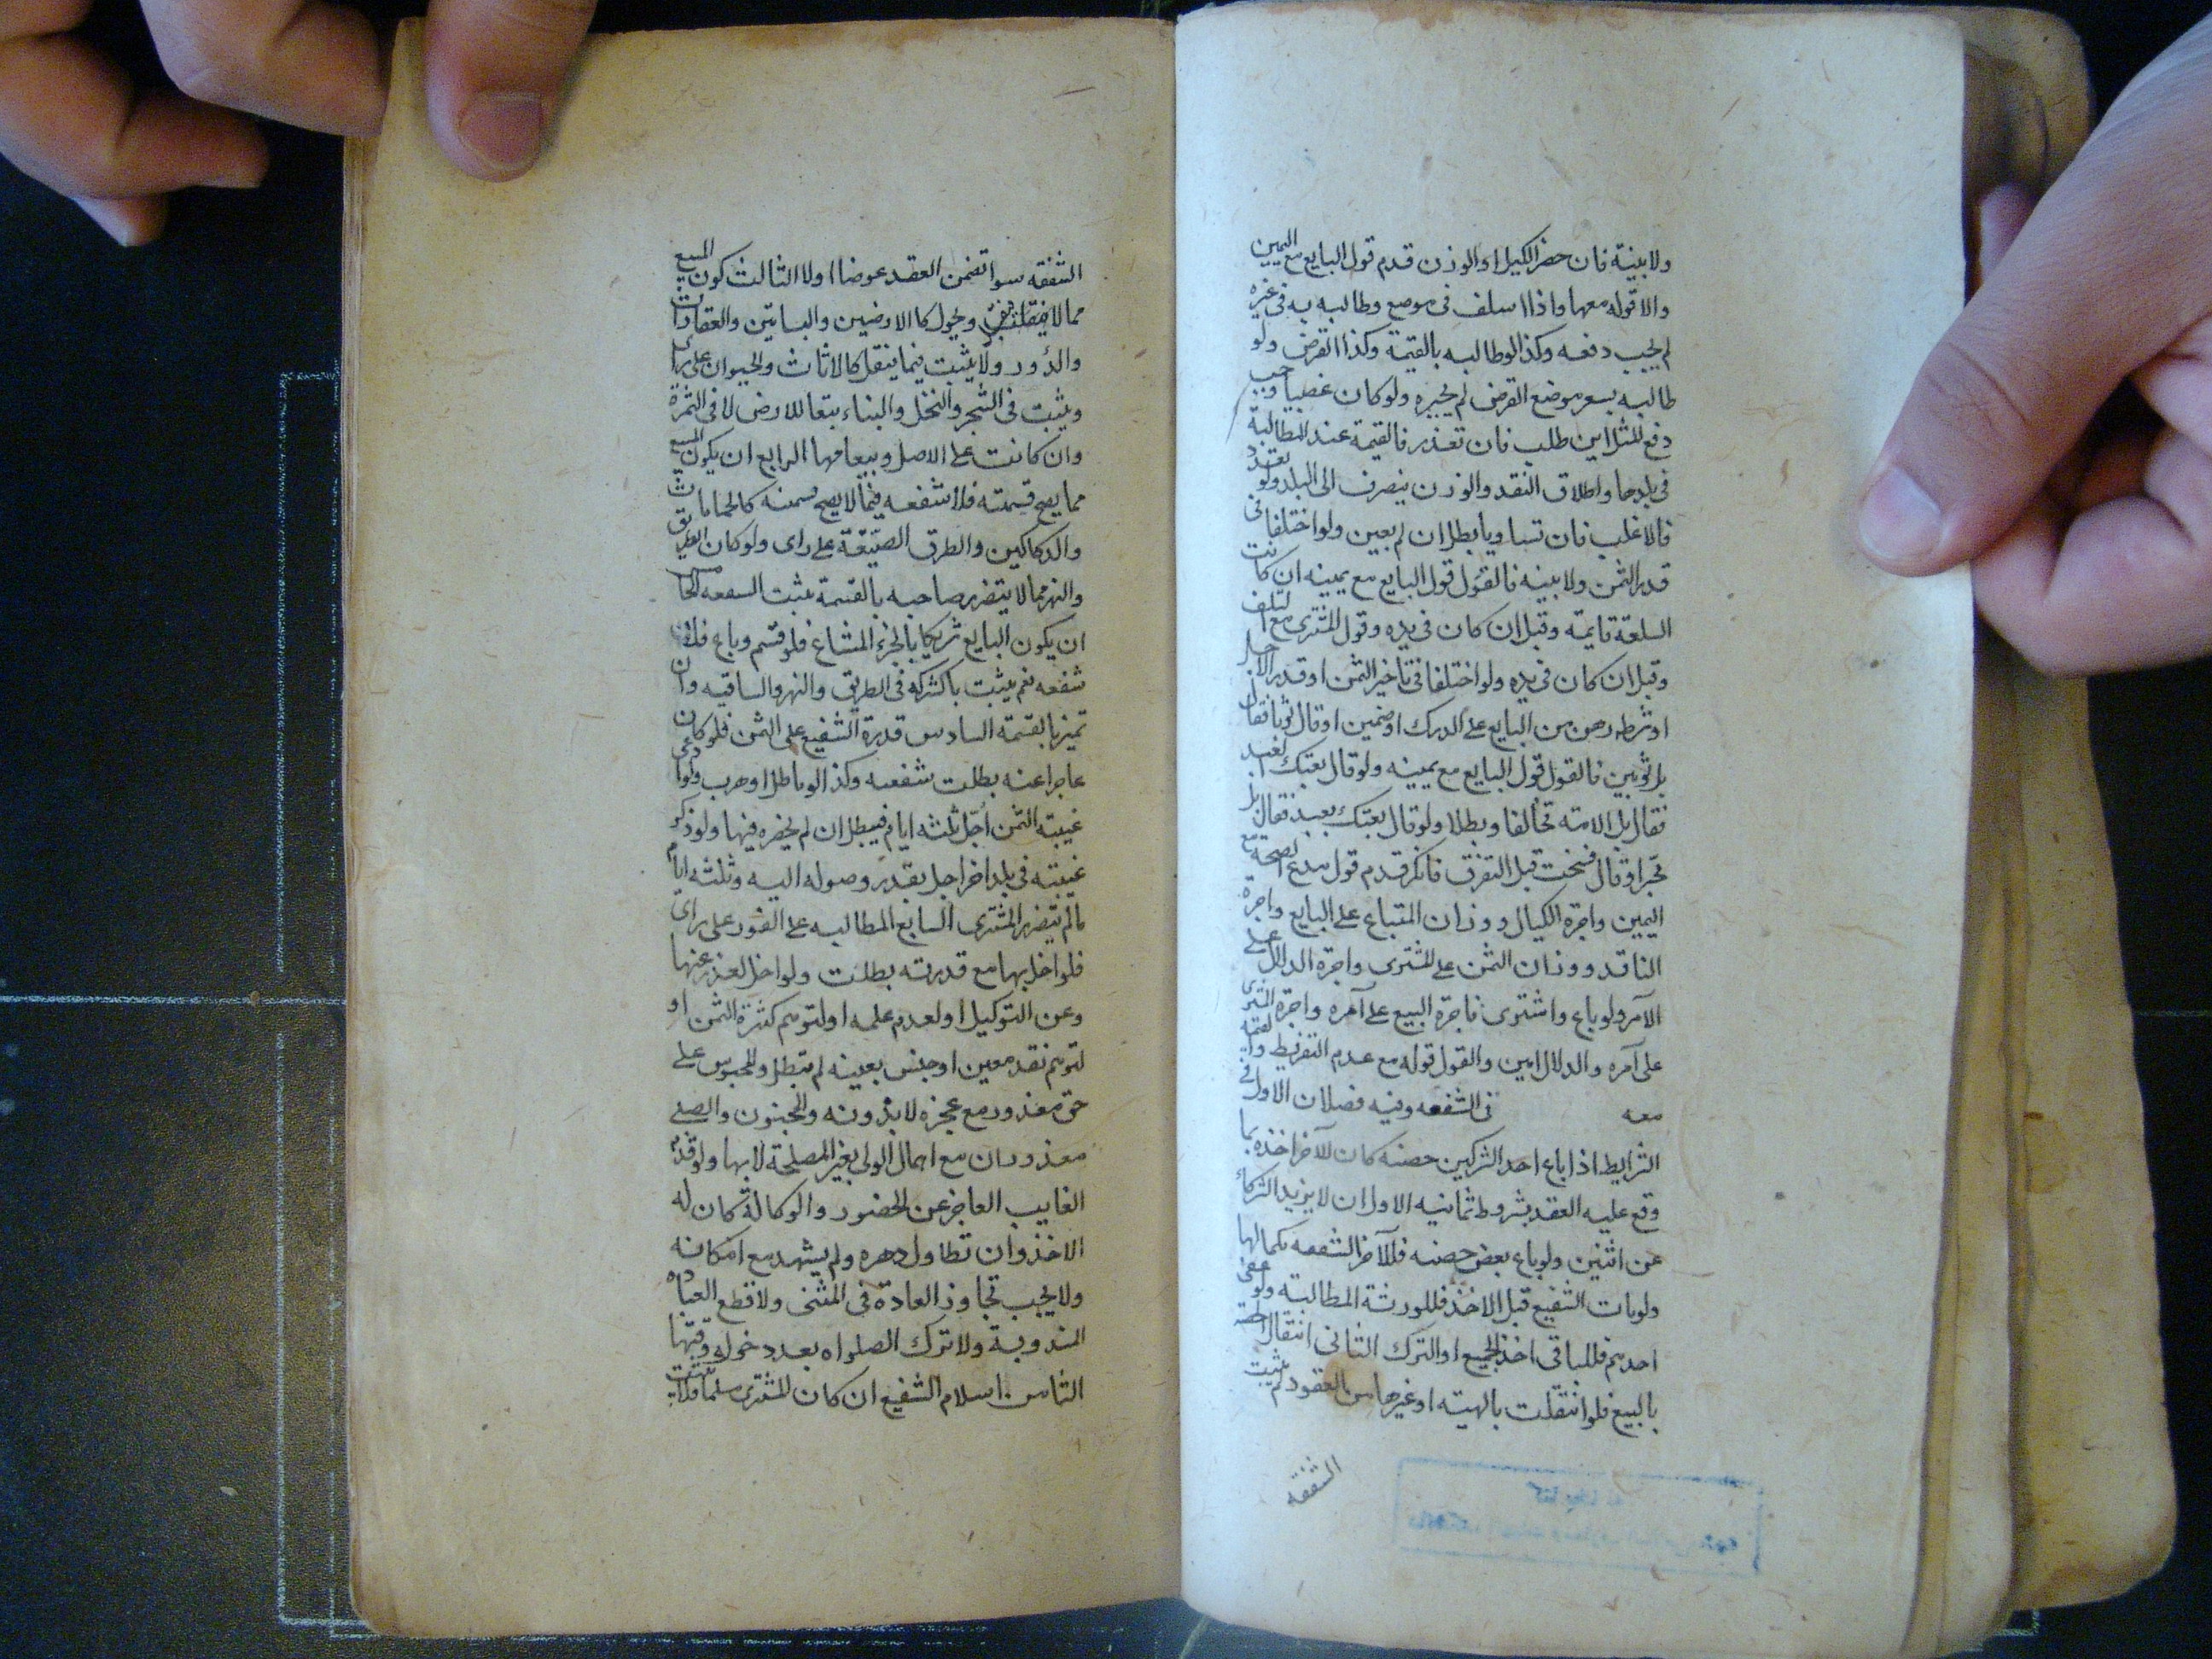 ولا بينة فان حضر الكيل او الوزن قدم قول البايع مع اليمين
والا قوله معها واذا اسلف فى موضع وطالبه به فى غيره
لم يجب دفعه وكذا لو طالبه بالقيمة وكذا القرض ولو
طالبه بسعر موضع القرض لم يجبره ولو كان غصبا وجب
دفع المثل اين طلب فان تعذر فالقيمة عند المطالبة
فى بلدها واطلاق النقد والوزن ينصرف الى البلد ولو تعدد
فالاغلب فان تساويا بطل ان لم يعين ولو اختلفا فى
قدر الثمن ولا بينه فالقول قول البايع مع يمينه ان كانت
السلعة قايمة وقيل ان كان فى يده وقول المشترى مع التلف
وقيل ان كان فى يده ولو اختلفا فى تاخير الثمن او قدر الاجل
او شرط رهن من البايع على الدرك او ضمين او قال ثوبا فقال
بل ثوبين فالقول قول البايع مع يمينه ولو قال بعتك العبد
فقال بل الامة تحالفا وبطلا ولو قال بعتك بعبد فقال بل
بحر او قال فسخت قبل التفرق فانكر قدم قول مدعى الصحة مع
اليمين واجرة الكيال ووزان المتباع على البايع واجرة
الناقد ووزان الثمن على المشترى واجرة الدلال على
الآمر ولو باع واشترى فاجرة البيع على آمره واجرة الشرى
على آمره والدلال امين والقول قوله مع عدم التفريط والقيمة
معه فى الشفعه وفيه فصلان الاول فى
الشرايط اذا باع احد الشركين حصته كان للآخر اخذه بما
وقع عليه العقد بشروط ثمانيه الاول ان لا يزيد الشركاء
عن اثنين ولو باع بعض حصته فللآخر الشفعه بكمالها
ولو مات الشفيع قبل الاخذ فللورثة المطالبة ولو عفى
احدهم فللباقى اخذ الجميع او الترك الثانى انتقال الحصه
بالبيع فلو انتقلت بالهبة او غيرها من العقود لم يثبت
الشفعه
الشفعه سوا تضمن العقد عوضا اولا الثالث كون المبيع
مما لا ينقل ويحول كالارضين والبساتين والعقارات
والدور ولا يثبت فيما ينقل كالاثاث والحيوان على راى
ويثبت فى الشجر والنخل والبناء تبعا للارض لا فى الثمرة
وان كانت على الاصل وبيعا معها الرابع ان يكون المبيع
مما يصح قسمته فلا شفعه فيما لا يصح قسمته كالحمامات
والدكاكين والطرق الضيقة على راى ولو كان الطريق
والنهر مما لا يتضرر صاحبه بالقسمة يثبت الشفعه الخامس
ان يكون البايع شريكا بالجزء المشاع فلو قسم وباع فلا
شفعه نعم يثبت بالشركه فى الطريق والنهر والساقيه وان
تميز بالقسمة السادس قدرة الشفيع على الثمن فلو كان
عاجزا عنه بطلت شفعته وكذا لو ماطل او هرب ولو ادعى
غيبته الثمن اجل ثلثه ايام فيبطل ان لم يحضره فيها ولو ذكر
غيبته فى بلد اخر اجل بقدر وصوله اليه وثلثه ايام
ما لم يتضرر المشترى السابع المطالبه على الفور على راى
فلو اخل بها مع قدرته بطلت ولو اخل لعذر عنها
وعن التوكيل او لعدم علمه او لتوهم كثرة الثمن او
لتوهم نقد معين او جنس بعينه لم تبطل والمحبوس على
حق معذور مع عجزه لا بدونه والمجنون والصبى
معذوران مع اهمال الولى بغير المصلحة لا بها ولو قدم
الغايب العاجز عن الحضور والوكالة كان له
الاخذ وان تطاول دهره ولم يشهد مع امكانه
ولا يجب تجاوز العادة فى المشى ولا قطع العباده
المندوبة ولا ترك الصلواه بعد دخول وقتها
الثامن اسلام الشفيع ان كان المشترى مسلما فلا يثبت